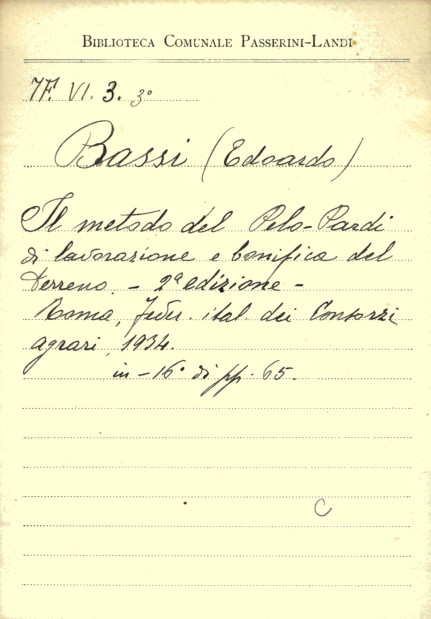 BIBLIOTECA COMUNALE PASSERINI-LANDI
7F. VI. 3. 3º
Bassi (Edoardo)
Il metodo del Pelo-Pardi
di lavorazione e bonifica del
terreno. - 2ª edizione -
Roma, Feder. ital. dei Consorzi
agrari, 1934.
in-16º di pp. 65.
C